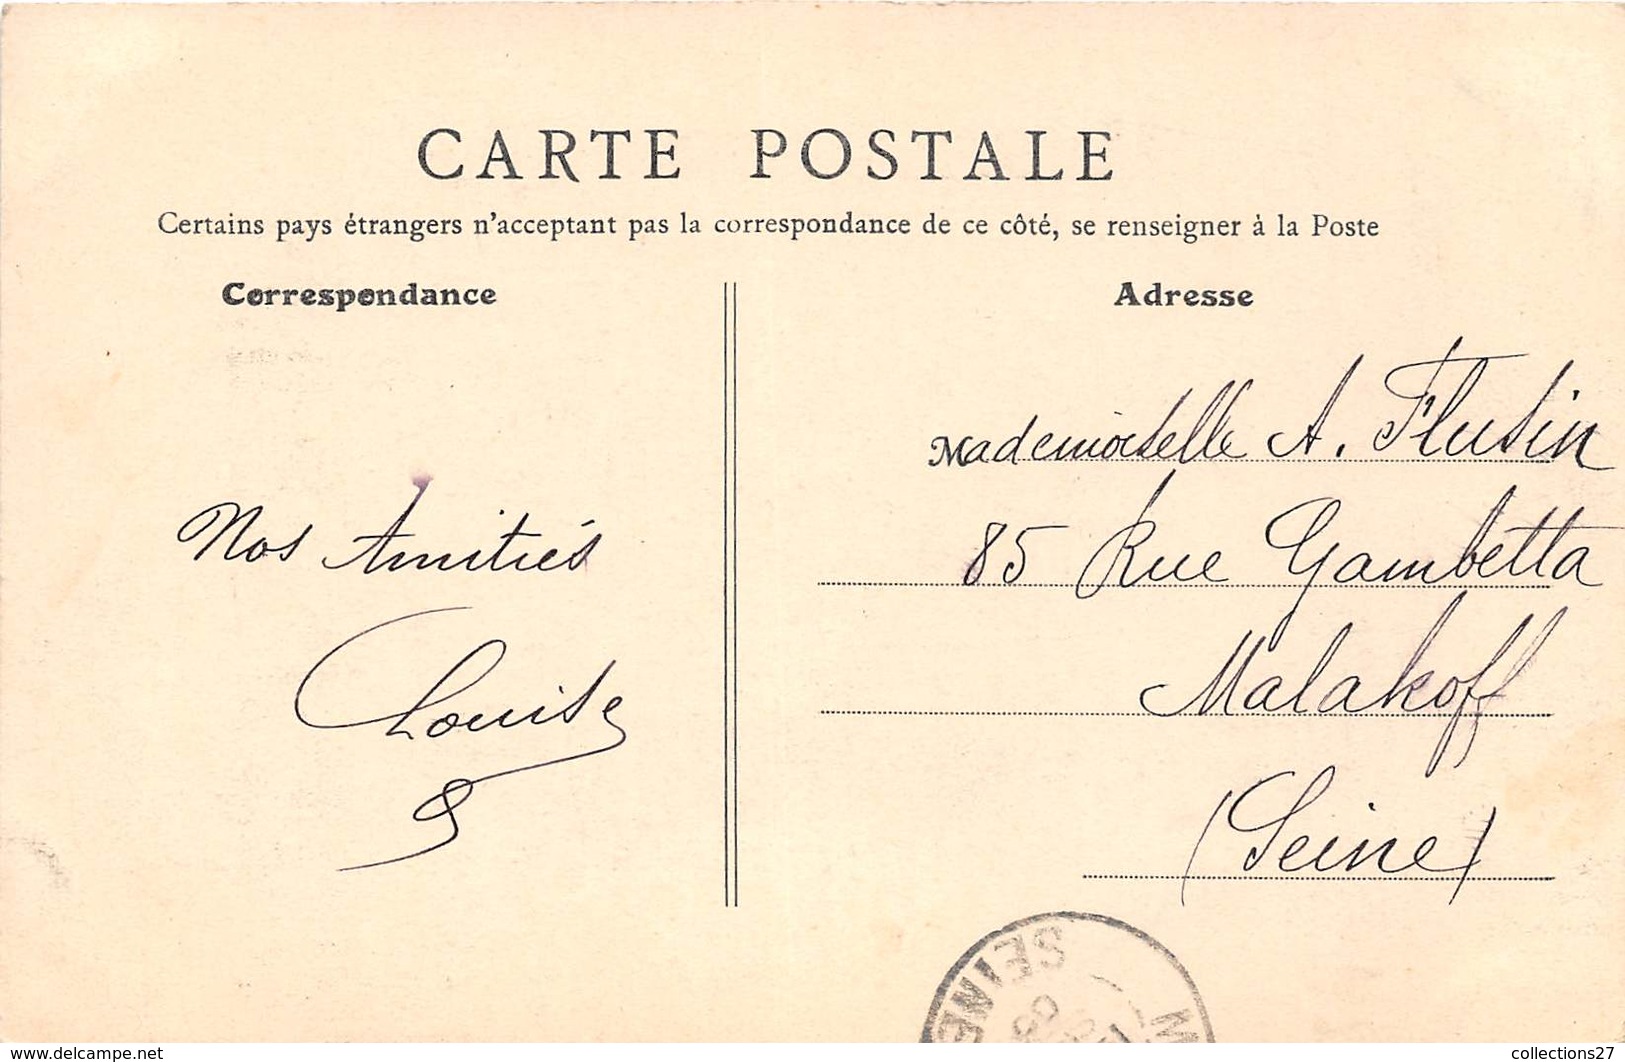 CARTE POSTALE
Certains pays étrangers n'acceptant pas la correspondance de ce côté, se renseigner à la Poste
Correspondance
Nos Amitiés
Louise
Adresse
Mademoiselle A. Flusin
85 Rue Gambetta
Malakoff
(Seine)
SEINE
www.delcampe.net
collections27